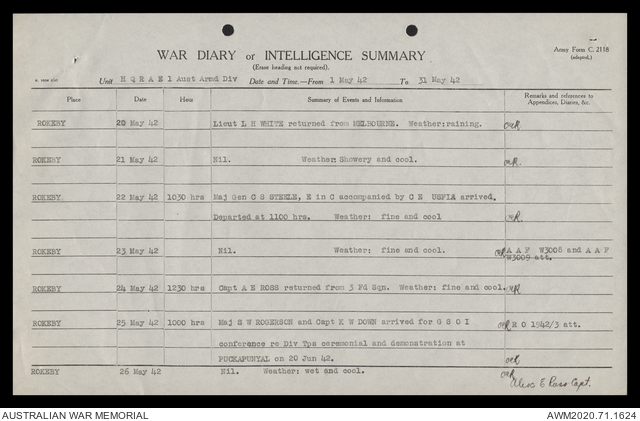 Army Form C. 2118
(adapted.)
WAR DIARY or INTELLIGENCE SUMMARY
(Erase heading not required).
Unit H Q R A E 1 Aust Armd Div Date and Time.—From 1 May 42 To 31 May 42
Place Date Hour Summary of Events and Information Remarks and references to Appendices, Diaries, &c.
ROKEBY 20 May 42 Lieut L H WHITE returned from MELBOURNE. Weather:raining.
ROKEBY 21 May 42 Nil. Weather: Showery and cool.
ROKEBY 22 May 42 1030 hrs Maj Gen C G STEELE, E in C accompanied by C E USFIA arrived.
Departed at 1100 hrs. Weather: fine and cool
ROKEBY 23 May 42 Nil. Weather: fine and cool. A A F W3008 and A A F
W3009 att.
ROKEBY 24 May 42 1230 hrs Capt A E ROSS returned from 3 Fd Sqn. Weather: fine and cool.
ROKEBY 25 May 42 1000 hrs Maj S W ROGERSON and Capt K W DOWN arrived for G S O I R O 1942/3 att.
conference re Div Tps ceremonial and demonstration at
PUCKAPUNYAL on 20 Jun 42.
ROKEBY 26 May 42 Nil. Weather: wet and cool.
Ross Capt.
AUSTRALIAN WAR MEMORIAL AWM2020.71.1624